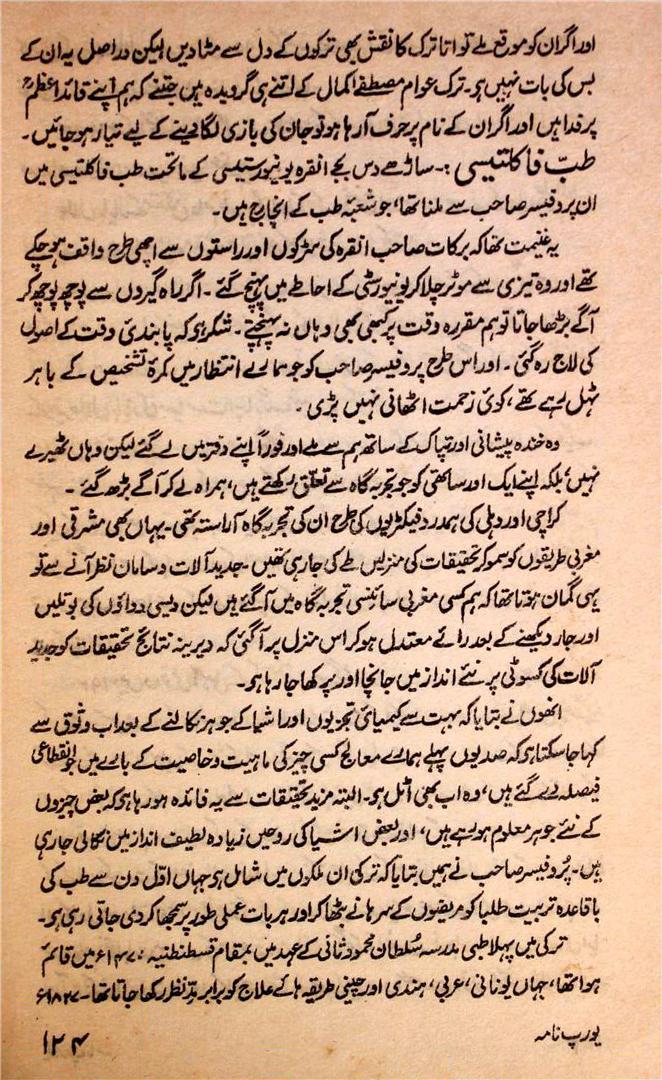 اور اگر ان کو موقع ملے تو اتاترک کا نقش بھی ترکوں کے دل سے مٹا دیں لیکن دراصل یہ ان کے
بس کی بات نہیں ہو۔ ترک عوام مصطفےٰ کمال کے اتنے ہی گرویدہ ہیں جتنے کہ ہم اپنے قائداعظمؒ
پر فدا ہیں اور اگر ان کے نام پر حرف آرہا ہو تو جان کی بازی لگا دینے کے لیے تیار ہو جائیں۔
طبّ فاکلتیسی :۔ ساڑھے دس بجے انقرہ یونیورستیسی کے ماتحت طب فاکلتیسی میں
ان پروفیسر صاحب سے ملنا تھا، جو شعبۂ طب کے انچارج ہیں۔
یہ غنیمت تھا کہ برکات صاحب انقرہ کی سڑکوں اور راستوں سے اچھی طرح واقف ہو چکے
تھے اور وہ تیزی سے موٹر چلا کر یونیورسٹی کے احاطے میں پہنچ گئے۔ اگر راہ گیروں سے پوچھ پوچھ کر
آگے بڑھا جاتا تو ہم مقررہ وقت پر کبھی بھی وہاں نہ پہنچتے۔ شکر ہو کہ پابندیٔ وقت کے اصول
کی لاج رہ گئی۔ اور اس طرح پروفیسر صاحب کو جو ہمارے انتظار میں کمرۂ تشخیص کے باہر
ٹہل رہے تھے، کوئی زحمت اٹھانی نہیں پڑی۔
وہ خندہ پیشانی اور تپاک کے ساتھ ہم سے ملے اور فوراً اپنے دفتر میں لے گئے لیکن وہاں ٹھیرے
نہیں؛ بلکہ اپنے ایک اور ساتھی کو جو تجربہ گاہ سے تعلق رکھتے ہیں، ہمراہ لے کر آگے بڑھ گئے۔
کراچی اور دہلی کی ہمدرد فیکٹریوں کی طرح ان کی تجربہ گاہ آراستہ تھی۔ یہاں بھی مشرقی اور
مغربی طریقوں کو سمو کر تحقیقات کی منزلیں طے کی جا رہی تھیں۔ جدید آلات و سامان نظر آنے سے تو
یہی گمان ہوتا تھا کہ ہم کسی مغربی سائنسی تجربہ گاہ میں آگئے ہیں لیکن دیسی دواؤں کی بوتلیں
اور جار دیکھنے کے بعد رائے معتدل ہو کر اس منزل پر آگئی کہ دیرینہ نتائج تحقیقات کو جدید
آلات کی کسوٹی پر نئے انداز میں جانچا اور پرکھا جا رہا ہو۔
انھوں نے بتایا کہ بہت سے کیمیائی تجزیوں اور اشیا کے جوہر نکالنے کے بعد اب وثوق سے
کہا جا سکتا ہو کہ صدیوں پہلے ہمارے معالج کسی چیز کی ماہیت و خاصیت کے بارے میں جو قطعی
فیصلہ دے گئے ہیں، وہ اب بھی اٹل ہو۔ البتہ مزید تحقیقات سے یہ فائدہ ہو رہا ہو کہ بعض چیزوں
کے نئے جوہر معلوم ہو رہے ہیں، اور بعض اشیا کی روحیں زیادہ لطیف انداز میں نکالی جا رہی
ہیں۔ پروفیسر صاحب نے ہمیں بتایا کہ ترکی ان ملکوں میں شامل ہو جہاں اوّل دن سے طب کی
باقاعدہ تربیت طلبا کو مریضوں کے سرہانے بٹھا کر اور ہر بات عملی طور پر سمجھا کر دی جاتی رہی ہو۔
ترکی میں پہلا طبی مدرسہ سُلطان محمود ثانی کے عہد میں بمقام قسطنطنیہ ۱۴۷۰ء میں قائم
ہوا تھا، جہاں یونانی، عربی، ہندی اور چینی طریقہ ہائے علاج کو برابر مدِّ نظر رکھا جاتا تھا۔ ۱۸۲۷ء
یورپ نامہ
۱۲۴